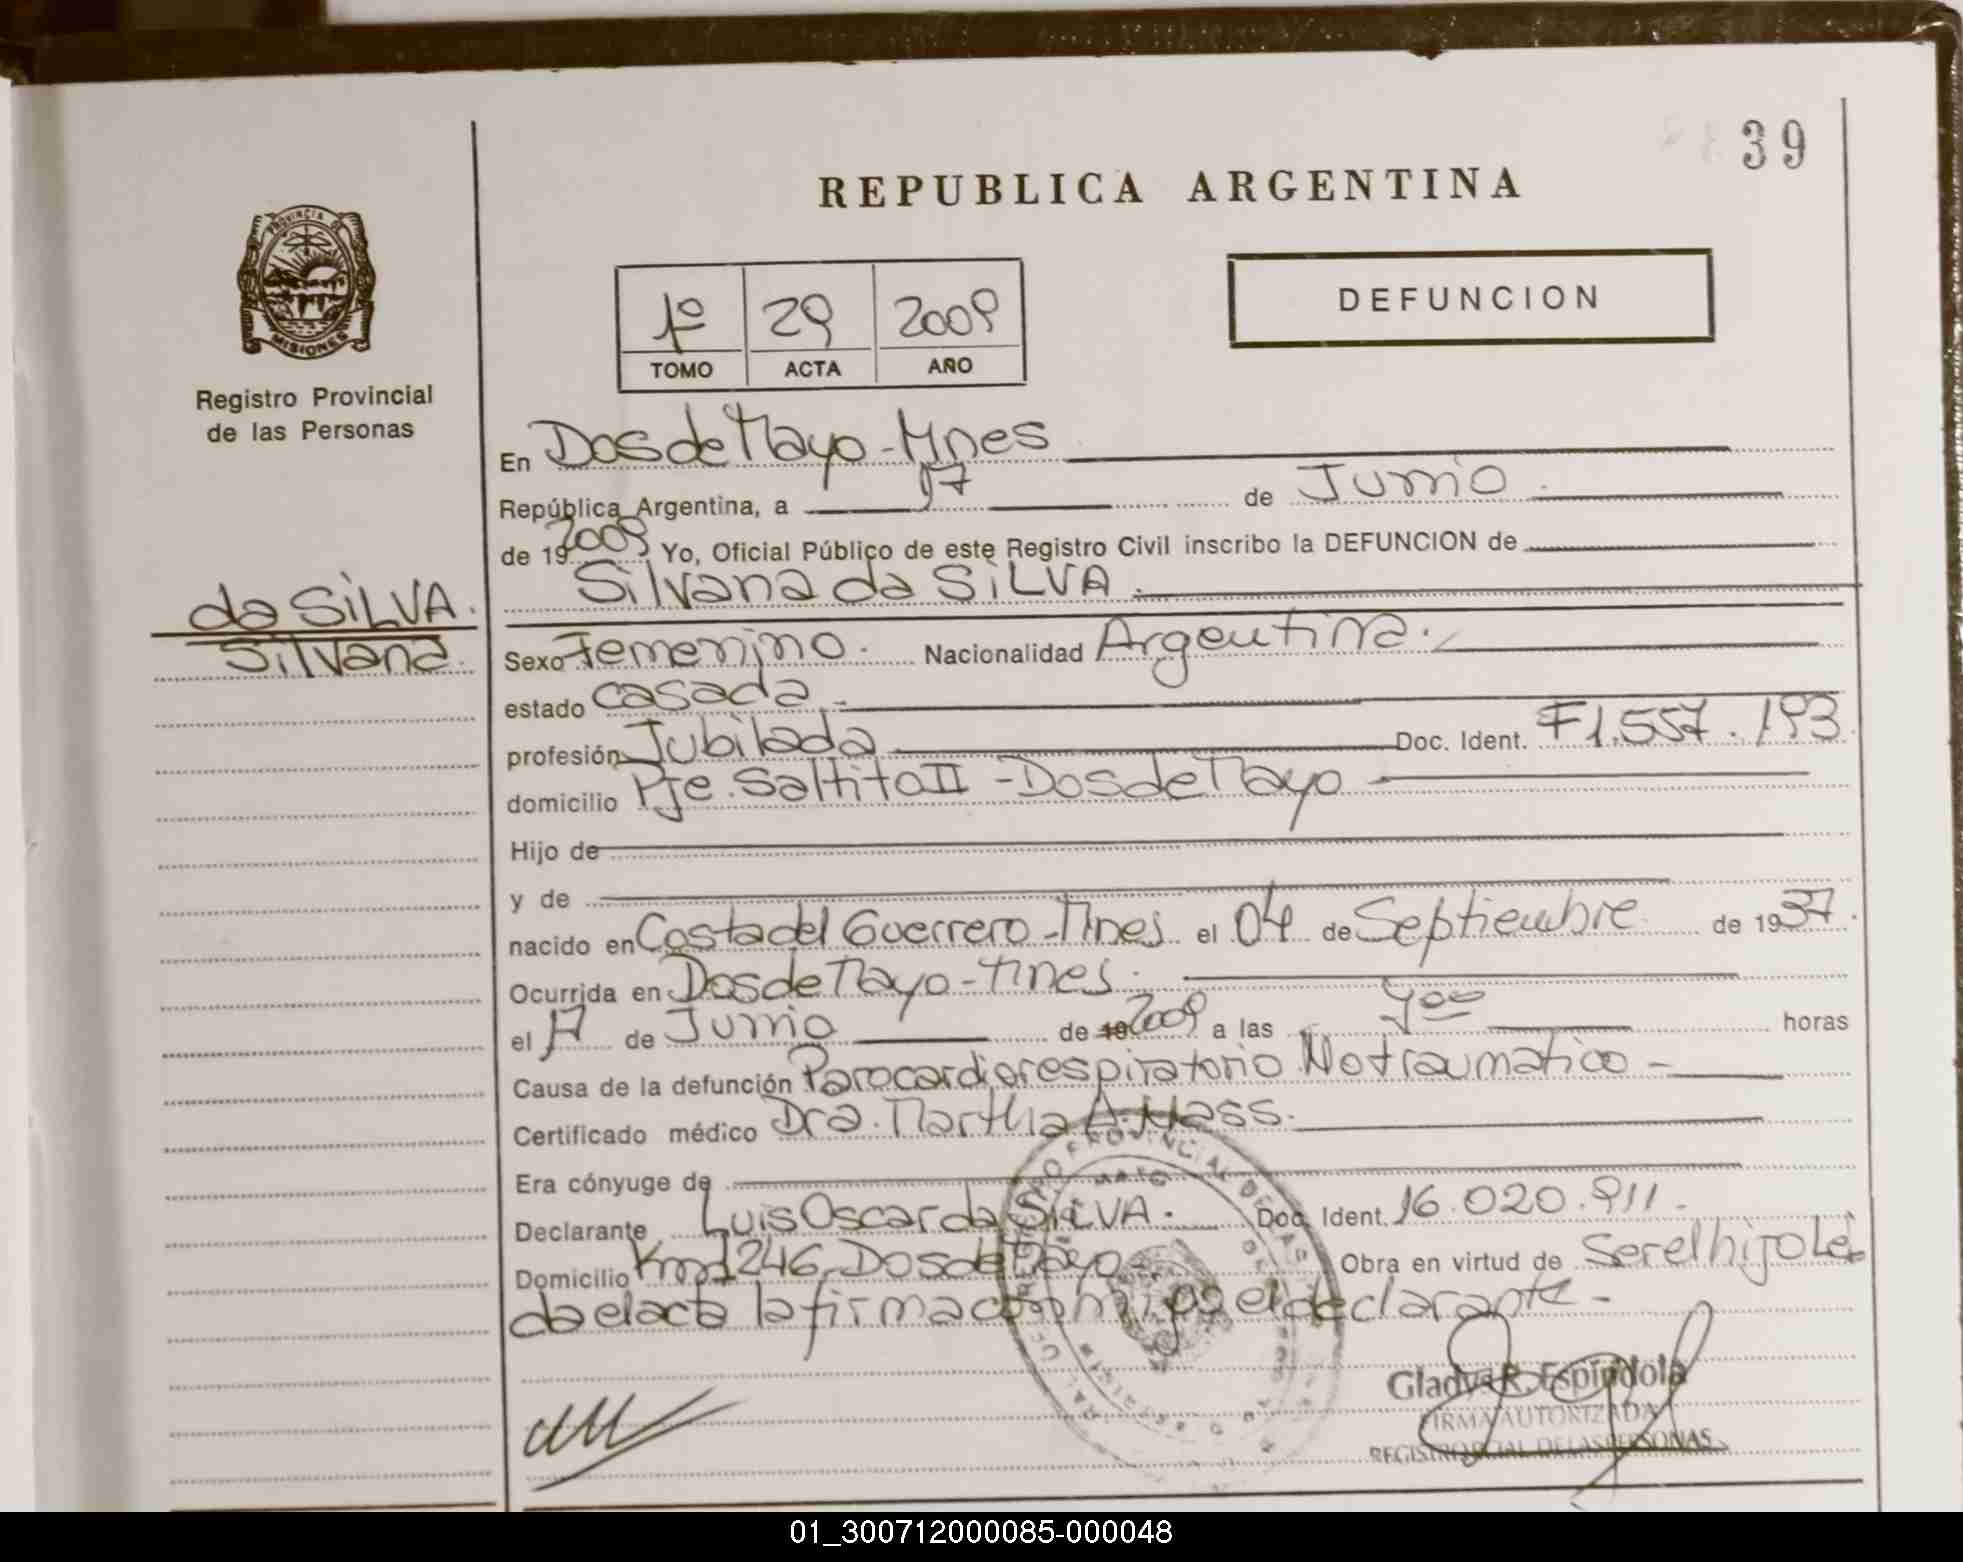 39
REPUBLICA ARGENTINA
PROVINCIA DE
MISIONES
Registro Provincial
de las Personas
1º 29 2009
TOMO ACTA AÑO
DEFUNCION
En Dos de Mayo - Mnes
República Argentina, a 17 de Junio.
de 19 2009 Yo, Oficial Público de este Registro Civil inscribo la DEFUNCION de
Silvana da SiLVA.
da SiLVA.
Silvana.
Sexo Femenino. Nacionalidad Argentina.
estado casada.
profesión Jubilada Doc. Ident. F1.557.193
domicilio Pje. Saltito II - Dos de Mayo
Hijo de
y de
nacido en Costa del Guerrero - Mnes el 04 de Septiembre de 1937.
Ocurrida en Dos de Mayo - Mnes.
el 17 de Junio de 19 2009 a las horas
Causa de la defunción Parocardiorespiratorio No traumatico -
Certificado médico Dra. Martha A. Mass.
Era cónyuge de
Declarante Luis Oscar da SiLVA. Doc. Ident. 16.020.911.
Domicilio Km 1246 Dos de Mayo Obra en virtud de Ser el hijo Leí
da el acta la firma conmigo el declarante -
Gladys R. Espíndola
FIRMA AUTORIZADA
REGISTRO PCIAL. DE LAS PERSONAS
01_300712000085-000048